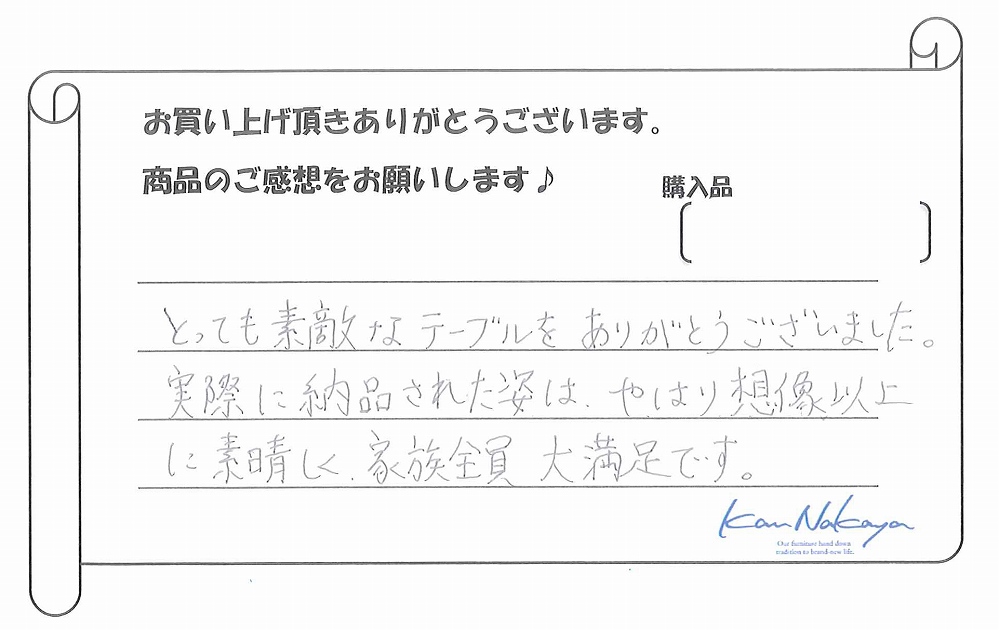 お買い上げ頂きありがとうございます。
商品のご感想をお願いします♪
購入品
とっても素敵なテーブルを ありがとうございました。
実際に納品された姿は、やはり想像以上
に素晴しく、家族全員 大満足です。
Kan Nakaya
Our furniture hand down
tradition to brand-new life.